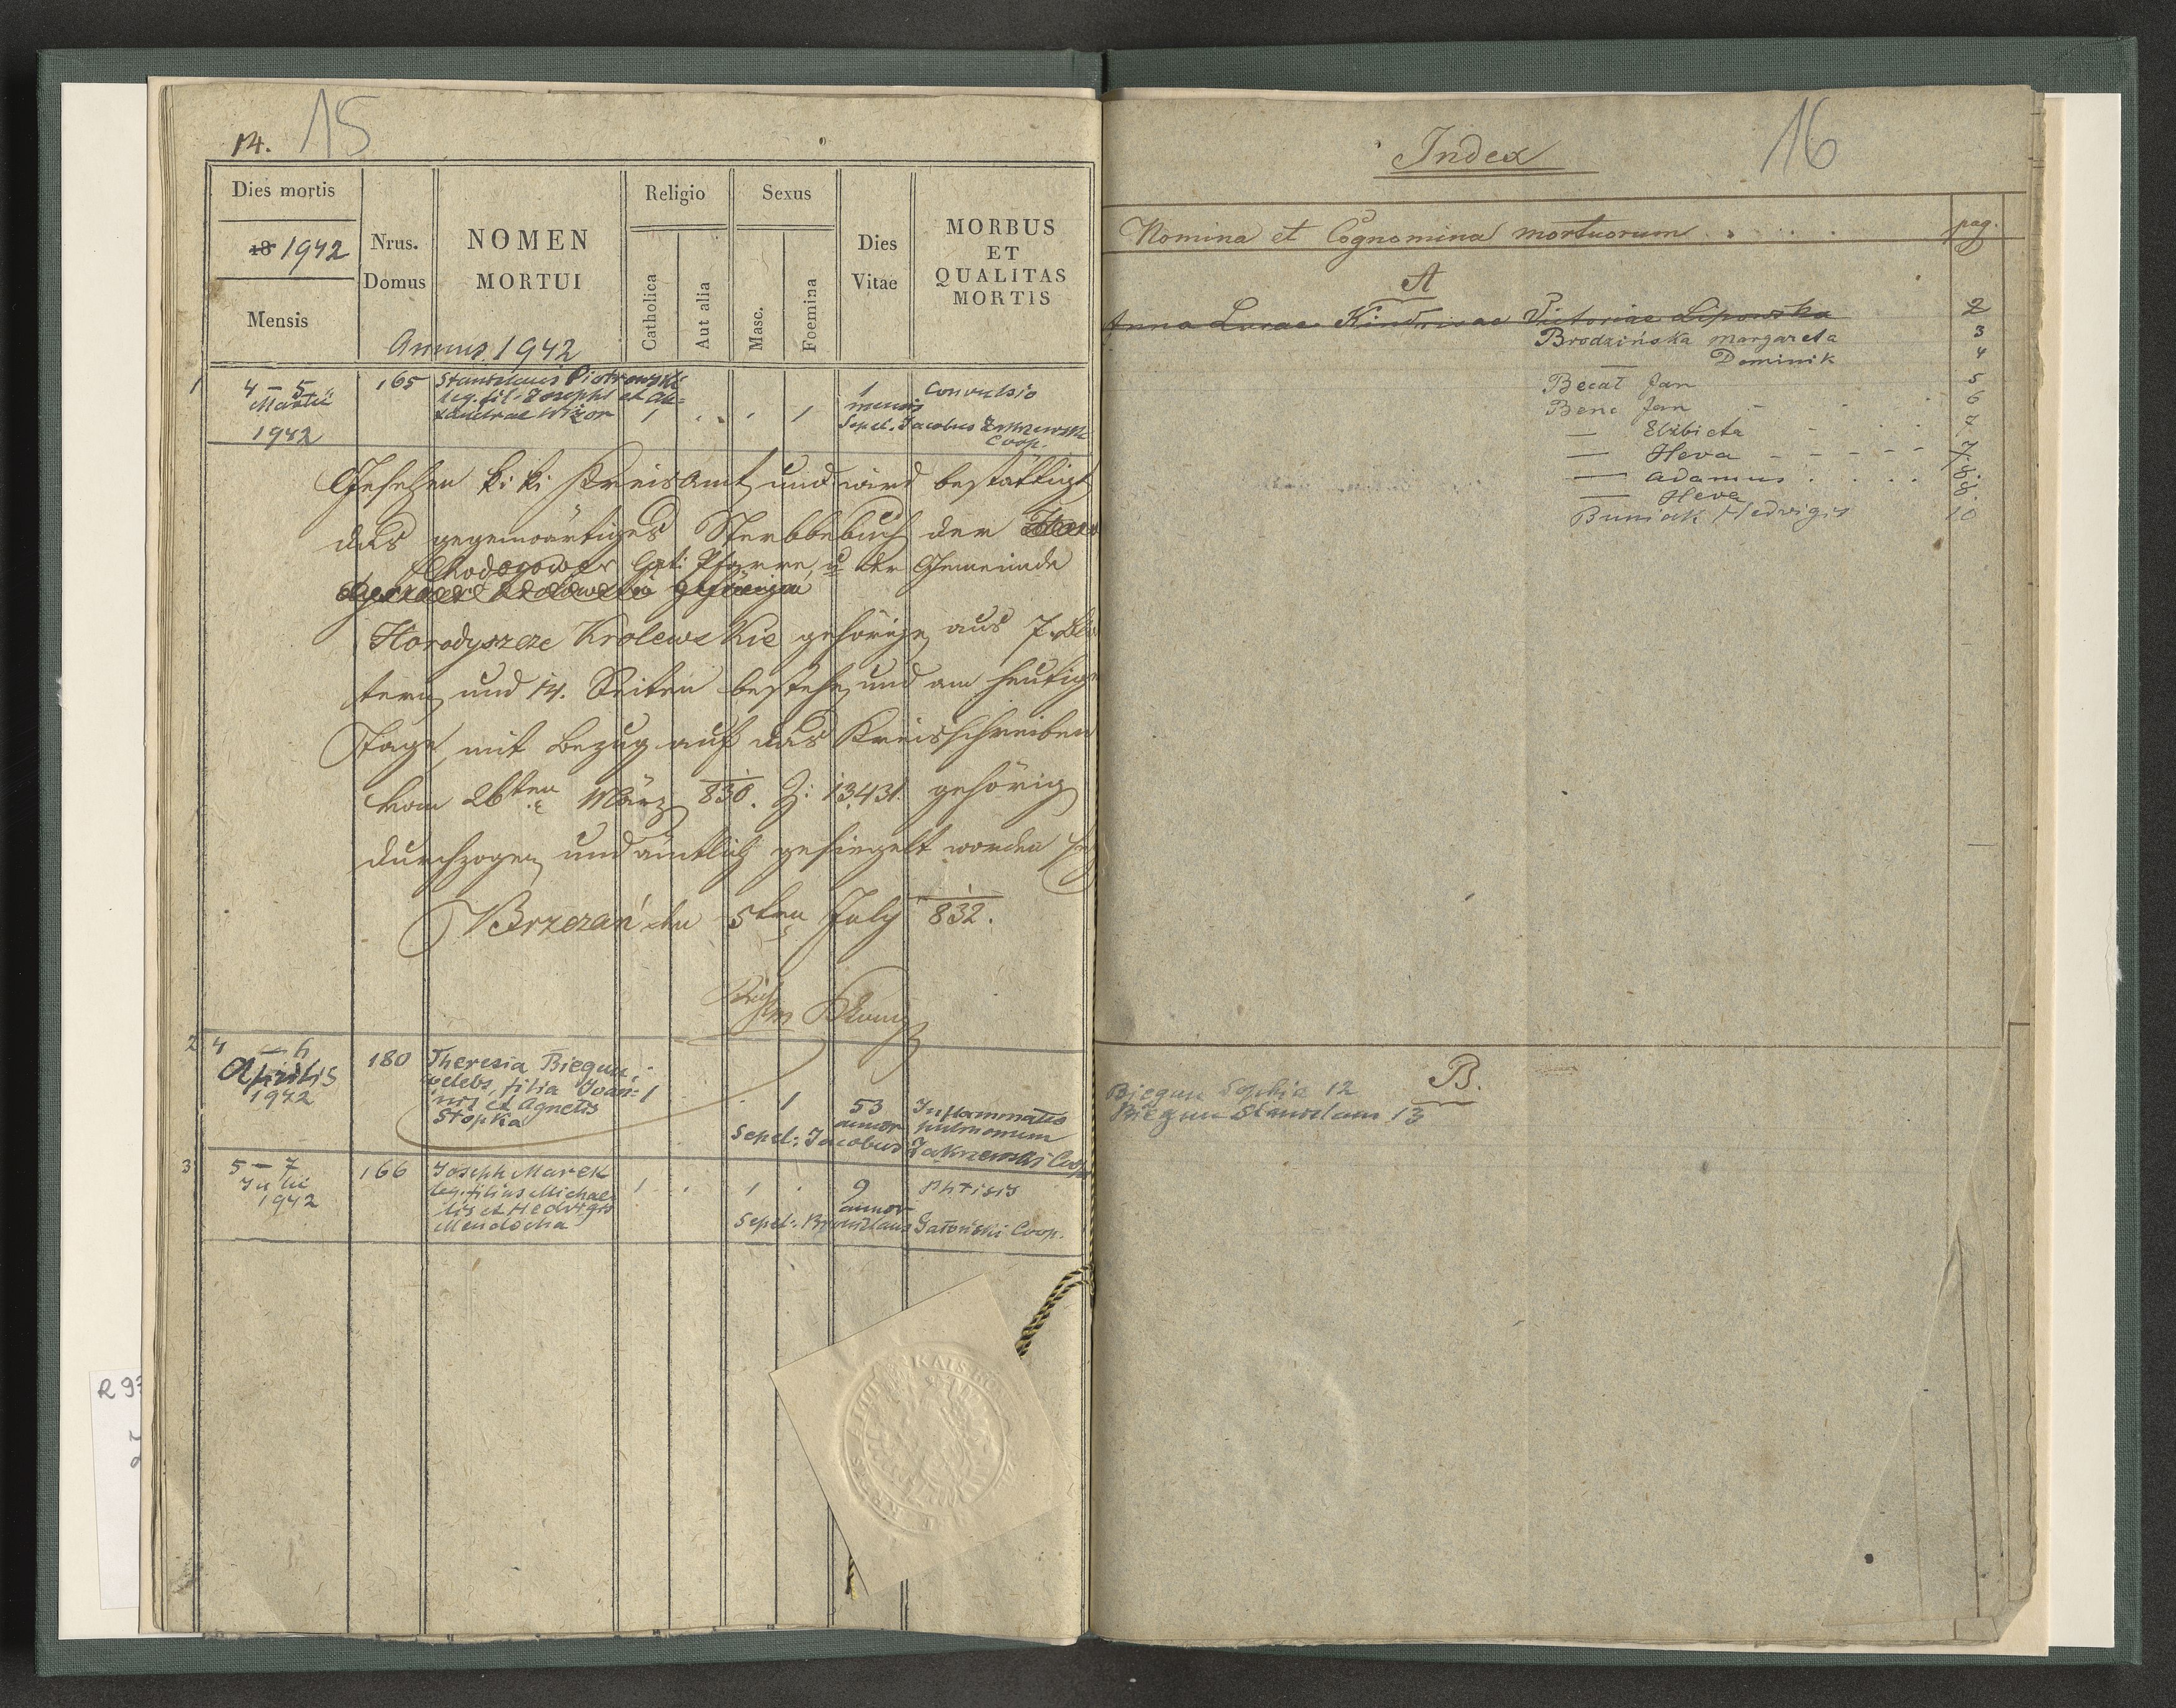 14. 15
Dies mortis
18 1942
Mensis
Nrus.
Domus
NOMEN
MORTUI
Annus 1942
Religio
Catholica
Aut alia
Sexus
Masc.
Foemina
Dies
Vitae
MORBUS
ET
QUALITAS
MORTIS
1 4 – 5
Martii
1942
165
Stanislaus Piotrowski
leg. fil. Josephi et Ale=
xandrae Wizor
1 1
1
mensis
Convulsio
Sepel. Jacobus Zakrzewski
Coop.
Gesehen k: k: Kreisamt und wird bestättigt
das gegenwärtiges Sterbbebuch der
Chodogower Lat: Pfarre, u der Gemeinde
Horodyszcze Krolewskie gehörige, aus 7. Blä
tern und 14. Seiten bestehe, und am heutigen
Tage, mit Bezug auf das Kreisschreiben
vom 26ten März 830. Z: 13431. gehörig
durchzogen und ämtlich gesiegelt worden sey
Brzezan den 5ten July 832.
2 4 – 6
Aprilis
1942
180
Theresia Biegun,
coelebs, filia Joan=
nis et Agnetis
Stopka
1 1
53
annor
Inflammatio
pulmonum
Sepel: Jacobus Zakrzewski Coop.
3 5 – 7
Julii
1942
166
Joseph Marek
leg. filius Michae
lis et Hedvigis
Mendocha
1 1
9
annor
Phtisis
Sepel: Bronislaus Gatoński Coop.
16
Index
Nomina et Cognomina mortuorum pag.
A
Anna Lucae Victoriae Lipowska 2
Brodzińska Margareta 3
— Dominik 4
Becał Jan 5
Benc Jan 6
— Elżbieta 7
— Heva 7.
— Adamus 8.
— Heva 8.
Buniak Hedvigis 10
B.
Biegun Sophia 12
Biegun Stanislaus 13
R 93